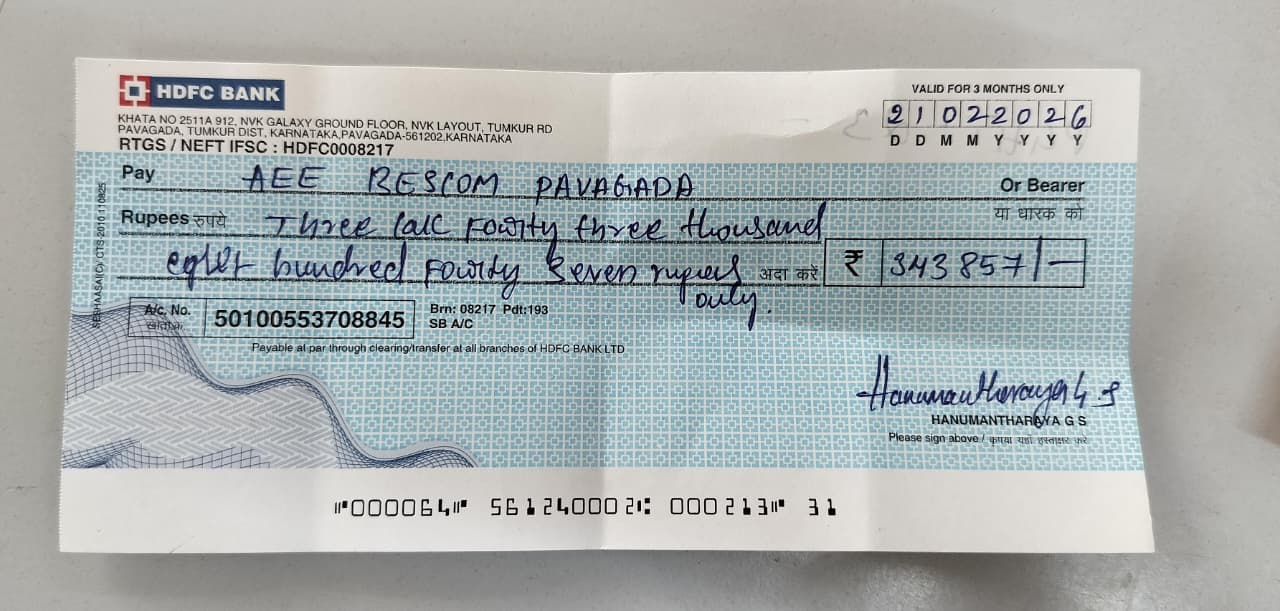 HDFC BANK
VALID FOR 3 MONTHS ONLY
KHATA NO 2511A 912, NVK GALAXY GROUND FLOOR, NVK LAYOUT, TUMKUR RD
PAVAGADA, TUMKUR DIST, KARNATAKA,PAVAGADA-561202,KARNATAKA
RTGS / NEFT IFSC : HDFC0008217
21022026
D D M M Y Y Y Y
Pay AEE BESCOM PAVAGADA Or Bearer
Rupees रुपये Three lak Fourty three thousand या धारक को
eghet hundred Fourty Seven rupies only. अदा करें ₹ 343857/-
A/c. No. 50100553708845 Brn: 08217 Pdt:193
खाता क्र. SB A/C
Payable at par through clearing/transfer at all branches of HDFC BANK LTD
HanumantharayaG S
HANUMANTHARAYA G S
Please sign above / कृपया यहाँ हस्ताक्षर करें
⑈000064⑈ 561240002⑆ 000213⑈ 31